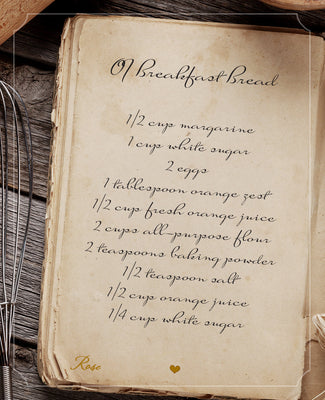 OJ Breakfast Bread
1/2 cup margarine
1 cup white sugar
2 eggs
1 tablespoon orange zest
1/2 cup fresh orange juice
2 cups all-purpose flour
2 teaspoons baking powder
1/2 teaspoon salt
1/2 cup orange juice
1/4 cup white sugar
Rose